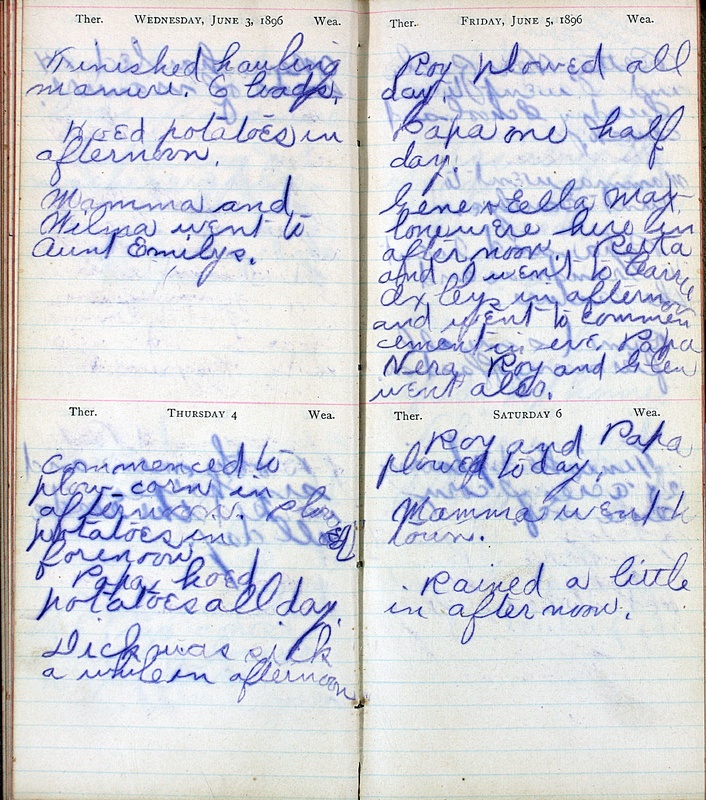 Ther. Wednesday, June 3, 1896 Wea.
Finished hauling
manure. 6 loads.
Hoed potatoes in
afternoon.
Mamma and
Wilma went to
Aunt Emilys.
Ther. Thursday 4 Wea.
Commenced to
plow corn in
afternoon. Plowed
potatoes in
forenoon.
Papa hoed
potatoes all day.
Dick was sick
a while in afternoon
Ther. Friday, June 5, 1896 Wea.
Roy plowed all
day.
Papa one half
day.
Gene & Ella Max-
lone were here in
afternoon. Retta
and I went to Carrie
Axleys in afternoon
and went to commen
cement in eve. Papa
Nera, Roy and Glen
went also.
Ther. Saturday 6 Wea.
Roy and Papa
plowed today.
Mamma went to
town.
Rained a little
in afternoon.